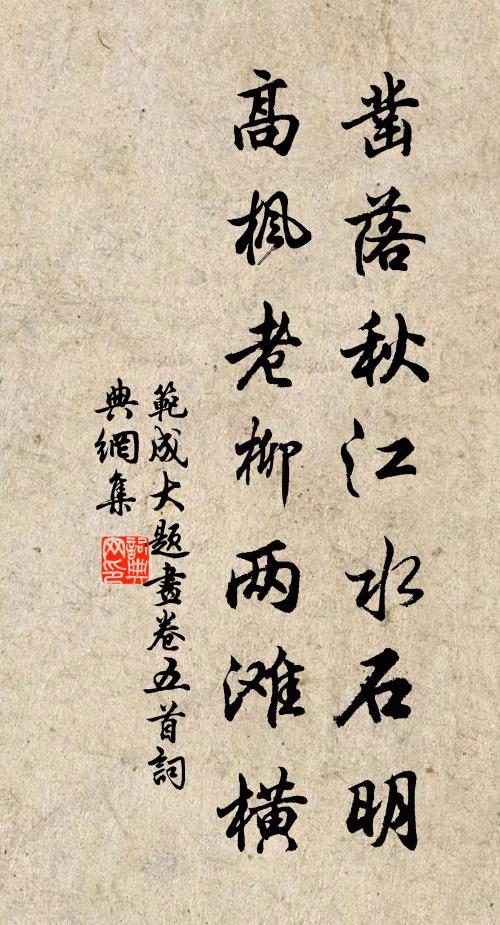 凿落秋江水石明
高枫老柳两滩横
範成大题畫卷五首詞
典網集
詞典
网印